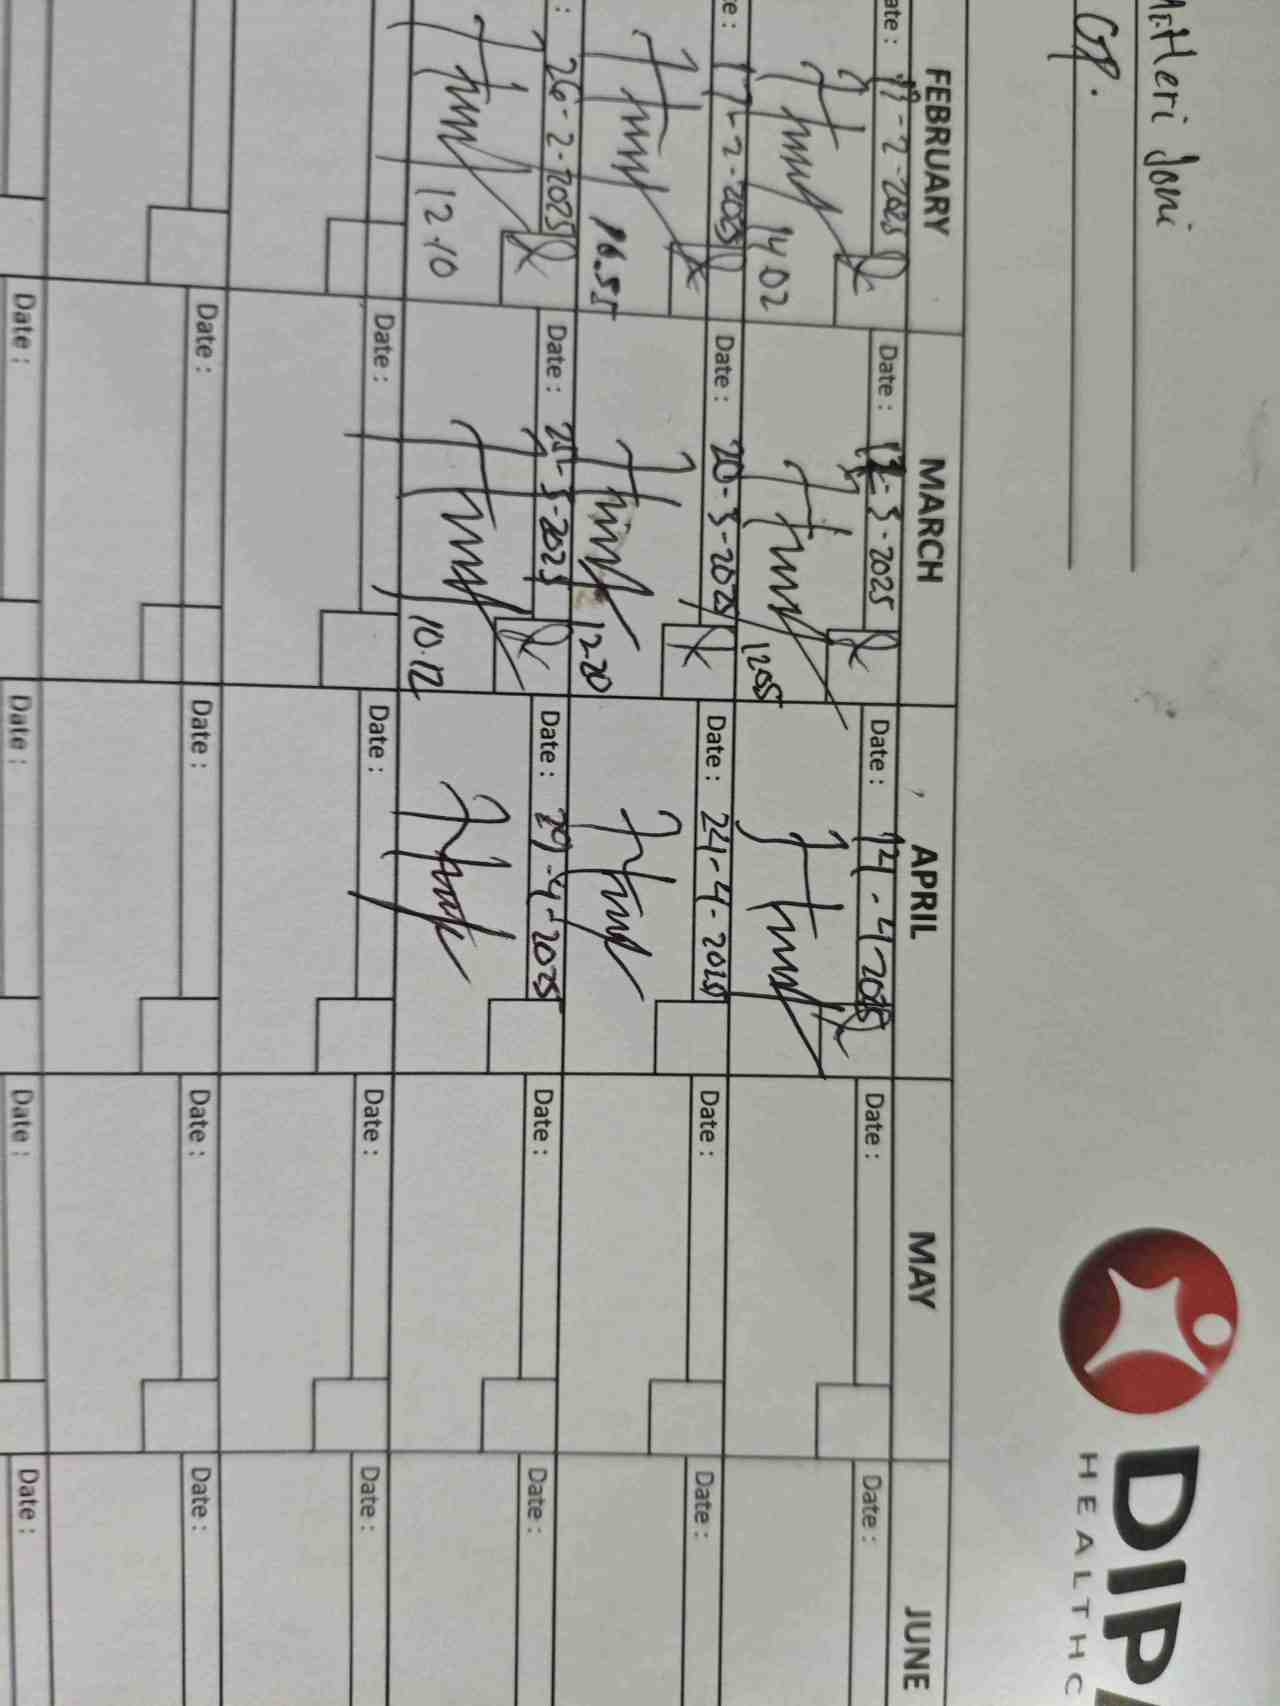 Heri Joni
GP.
DIP
HEALTHC
FEBRUARY MARCH APRIL MAY JUNE
ate : 11-2-2025 Date : 12-3-2025 Date : 14-4-2025 Date : Date :
14.02 1205
te : 17-2-2025 Date : 20-3-2025 Date : 24-4-2025 Date : Date :
16.55 12.20
: 26-2-2025 Date : 25-3-2025 Date : 29-4-2025 Date : Date :
12.10 10.12
Date : Date : Date : Date :
Date : Date : Date : Date :
Date : Date : Date : Date :